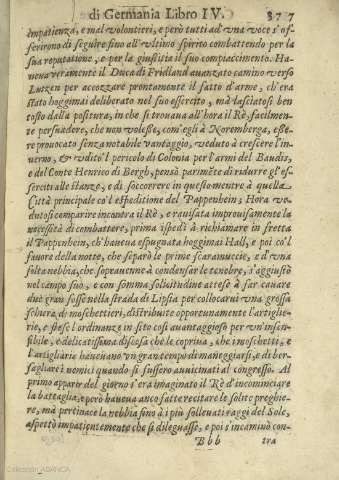 di Germania Libro IV. 377
impatienza, e mal volontieri, e però tutti ad vna voce s'of-
ferirono di seguire fino all'vltimo spirito combattendo per la
sua reputatione, e per la giustitia il suo compiaccimento. Ha-
ueua veramente il Duca di Fridland auanzato camino verso
Lutzen per accozzare prontamente il fatto d'arme, ch'era
stato hoggimai deliberato nel suo essercito, mà lasciatosi ben
tosto dalla positura, in che si trouaua all'hora il Rè, facilmen-
te persuadere, che non volesse, com'egli à Noremberga, esse-
re prouocato senza notabile vantaggio, veduto à crescere l'in-
uerno, & vdito'l pericolo di Colonia per l'armi del Baudis,
e del Conte Henrico di Bergh, pensò parimẽte di ridurre gl'es-
serciti alle stanze, e di soccorrere in questo mentre à quella
Città principale co'l espeditione del Pappenheim; Hora ve-
dutosi comparire incontra il Rè, e rauisata improuisamente la
necessità di combattere, prima ispedì à richiamare in fretta
il Pappenheim, ch'haueua espugnata hoggimai Hall, e poi co'l
fauore della notte, che separò le prime scaramuccie, e d'vna
folta nebbia, che soprauenne à condensar le tenebre, s'aggiustò
nel campo suo, e con somma solicitudine attese à far cauare
due gran fosse nella strada di Lipsia per collocarui vna grossa
schiera di moschettieri, distribuite opportunamente l'artiglie-
rie, e stese l'ordinanze in sito così auantaggioso per vn'insen-
sibile, e delicatissima discesa che le copriua, che i moschetti, e
l'artigliarie haueuano vn gran tempo di maneggiarsi, e di ber-
sagliare i nemici quando si fussero auuicinati al congresso. Al
primo apparir del giorno s'era imaginato il Rè d'incominciare
la battaglia, e però haueua anco fatte recitare le solite preghie-
re, mà pertinace la nebbia fino à i più solleuati raggi del Sole,
aspettò impatientemente che si dileguasse, e poi s'incaminò con-
Bbb tra
Colección ABANCA